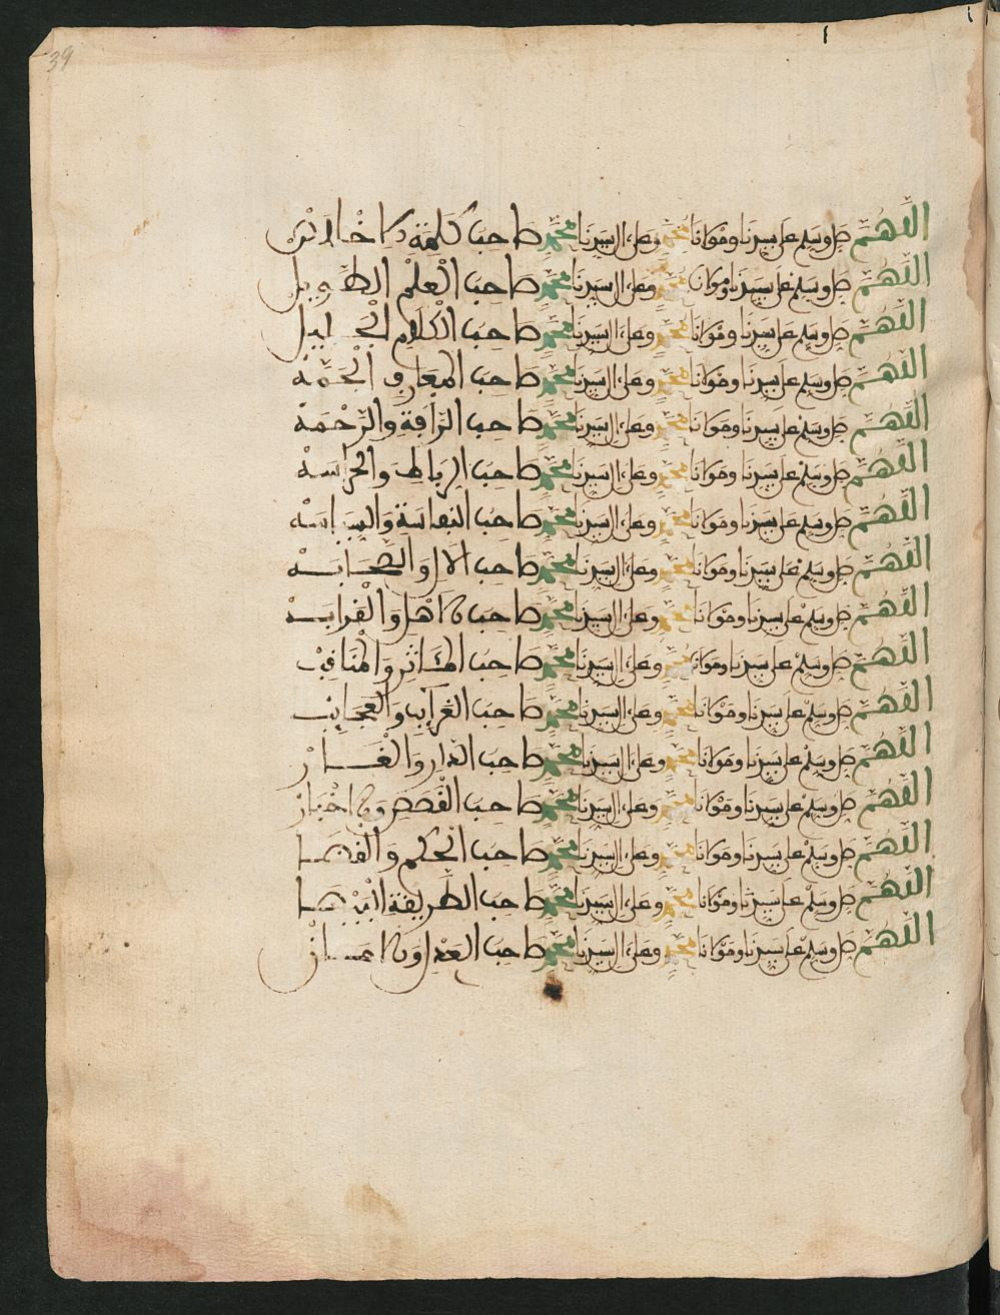 39
اللهم صل وسلم على سيدنا ومولانا محمد وعلى ءال سيدنا محمد صاحب كلمة الاخلاص
اللهم صل وسلم على سيدنا ومولانا محمد وعلى ءال سيدنا محمد صاحب العلم الطويل
اللهم صل وسلم على سيدنا ومولانا محمد وعلى ءال سيدنا محمد صاحب الكلام الجليل
اللهم صل وسلم على سيدنا ومولانا محمد وعلى ءال سيدنا محمد صاحب المعارف الجمة
اللهم صل وسلم على سيدنا ومولانا محمد وعلى ءال سيدنا محمد صاحب الرأفة والرحمة
اللهم صل وسلم على سيدنا ومولانا محمد وعلى ءال سيدنا محمد صاحب الرباط والحراسة
اللهم صل وسلم على سيدنا ومولانا محمد وعلى ءال سيدنا محمد صاحب النفاسة والسياسة
اللهم صل وسلم على سيدنا ومولانا محمد وعلى ءال سيدنا محمد صاحب الال والصحابة
اللهم صل وسلم على سيدنا ومولانا محمد وعلى ءال سيدنا محمد صاحب الاهل والقرابة
اللهم صل وسلم على سيدنا ومولانا محمد وعلى ءال سيدنا محمد صاحب المئاثر والمناقب
اللهم صل وسلم على سيدنا ومولانا محمد وعلى ءال سيدنا محمد صاحب الغرايب والعجايب
اللهم صل وسلم على سيدنا ومولانا محمد وعلى ءال سيدنا محمد صاحب الدار والغار
اللهم صل وسلم على سيدنا ومولانا محمد وعلى ءال سيدنا محمد صاحب القصص والاخبار
اللهم صل وسلم على سيدنا ومولانا محمد وعلى ءال سيدنا محمد صاحب الحكم والقضا
اللهم صل وسلم على سيدنا ومولانا محمد وعلى ءال سيدنا محمد صاحب الطريقة البيضا
اللهم صل وسلم على سيدنا ومولانا محمد وعلى ءال سيدنا محمد صاحب العدل والامان